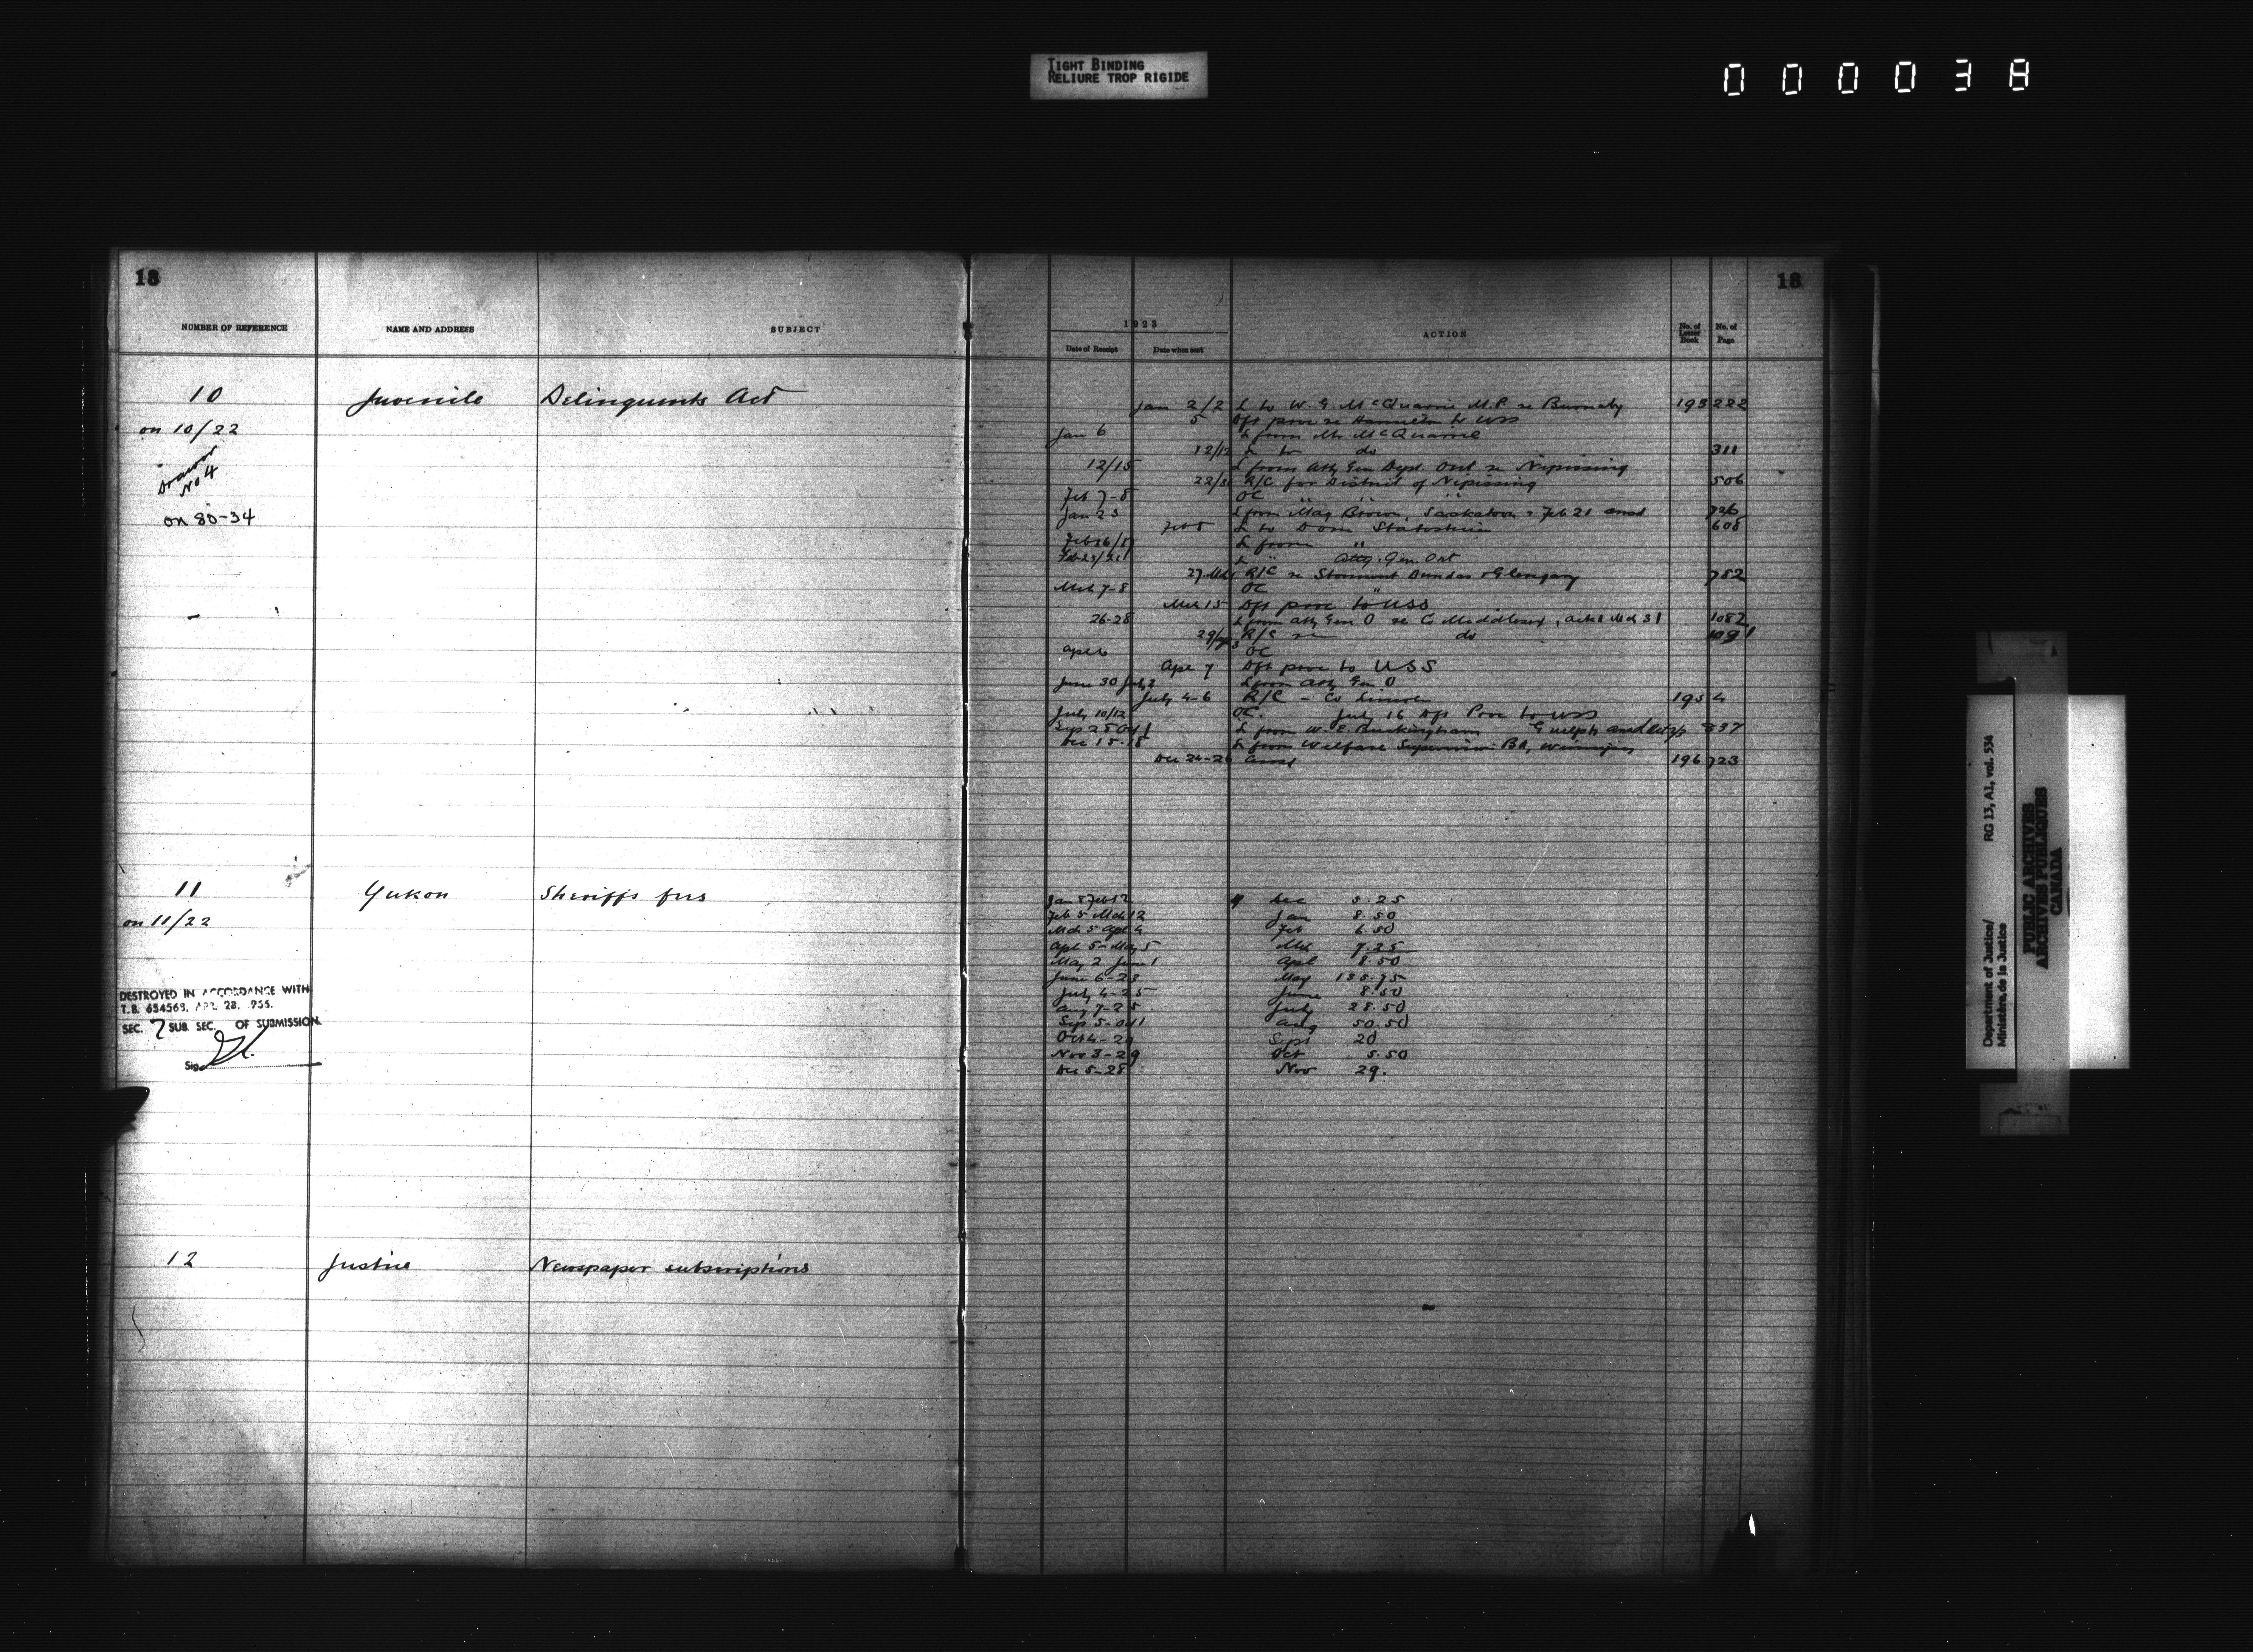 TIGHT BINDING
RELIURE TROP RIGIDE
000038
18
NUMBER OF REFERENCE NAME AND ADDRESS SUBJECT
10 Juvenile Delinquents Act
on 10/22
Drawer
No 4
on 80-34
11 Yukon Sheriffs fees
on 11/22
DESTROYED IN ACCORDANCE WITH
T.B. 654563, APR. 28, 1955.
SEC. 7 SUB. SEC. OF SUBMISSION
Sig.
12 Justice Newspaper subscriptions
18
1923
Date of Receipt Date when sent ACTION No. of Letter Book No. of Page
Jan 2/2 L to W. G. McQuarrie M.P. re Burnaby 193 222
5 Dft procn re Hamilton to USS
Jan 6 L from Mr McQuarrie
12/12 L to do 311
12/15 L from Atty Gen Dept. Ont re Nipissing
22/3 R/C for District of Nipissing 506
Feb 7-8 OC " " "
Jan 23 L from Mag Brown, Saskatoon Feb 21 ansd 726
Feb 8 L to Dom Statistician 608
Feb 16/17 L from "
Feb 23/26 L " Atty. Gen. Ont
27 Mch 1 R/C re Stormont Dundas & Glengary 782
Mch 7-8 OC "
Mch 15 Dft procn to USS
26-28 L from Atty Gen O re Co Middlesex, ackd Mch 31 1082
29/Apl 3 R/C re do 1091
Apl 6 OC
Apl 7 Dft procn to USS
June 30 July 2 L from Atty Gen O
July 4-6 R/C - Co Lincoln 195 4
July 10/12 OC. July 16 Dft Procn to USS
Sep 28 Oct 1 L from W. E. Buckingham Guelph ansd Oct 3/5 897
Dec 15-18 L from Welfare Supervision Bd, Winnipeg
Dec 24-26 Ansd 196 723
Jan 8 Feb 12 Dec 5.25
Feb 5 Mch 12 Jan 8.50
Mch 5 Apl 4 Feb 6.50
Apl 5-May 5 Mch 7.25
May 2 June 1 Apl 8.50
June 6-23 May 138.75
July 4-25 June 8.50
Aug 7-28 July 28.50
Sep 5-Oct 1 Aug 50.50
Oct 4-29 Sept 20
Nov 3-29 Oct 5.50
Dec 5-28 Nov 29.
Department of Justice/ RG 13, A1, vol. 534
Ministère de la Justice
PUBLIC ARCHIVES
ARCHIVES PUBLIQUES
CANADA